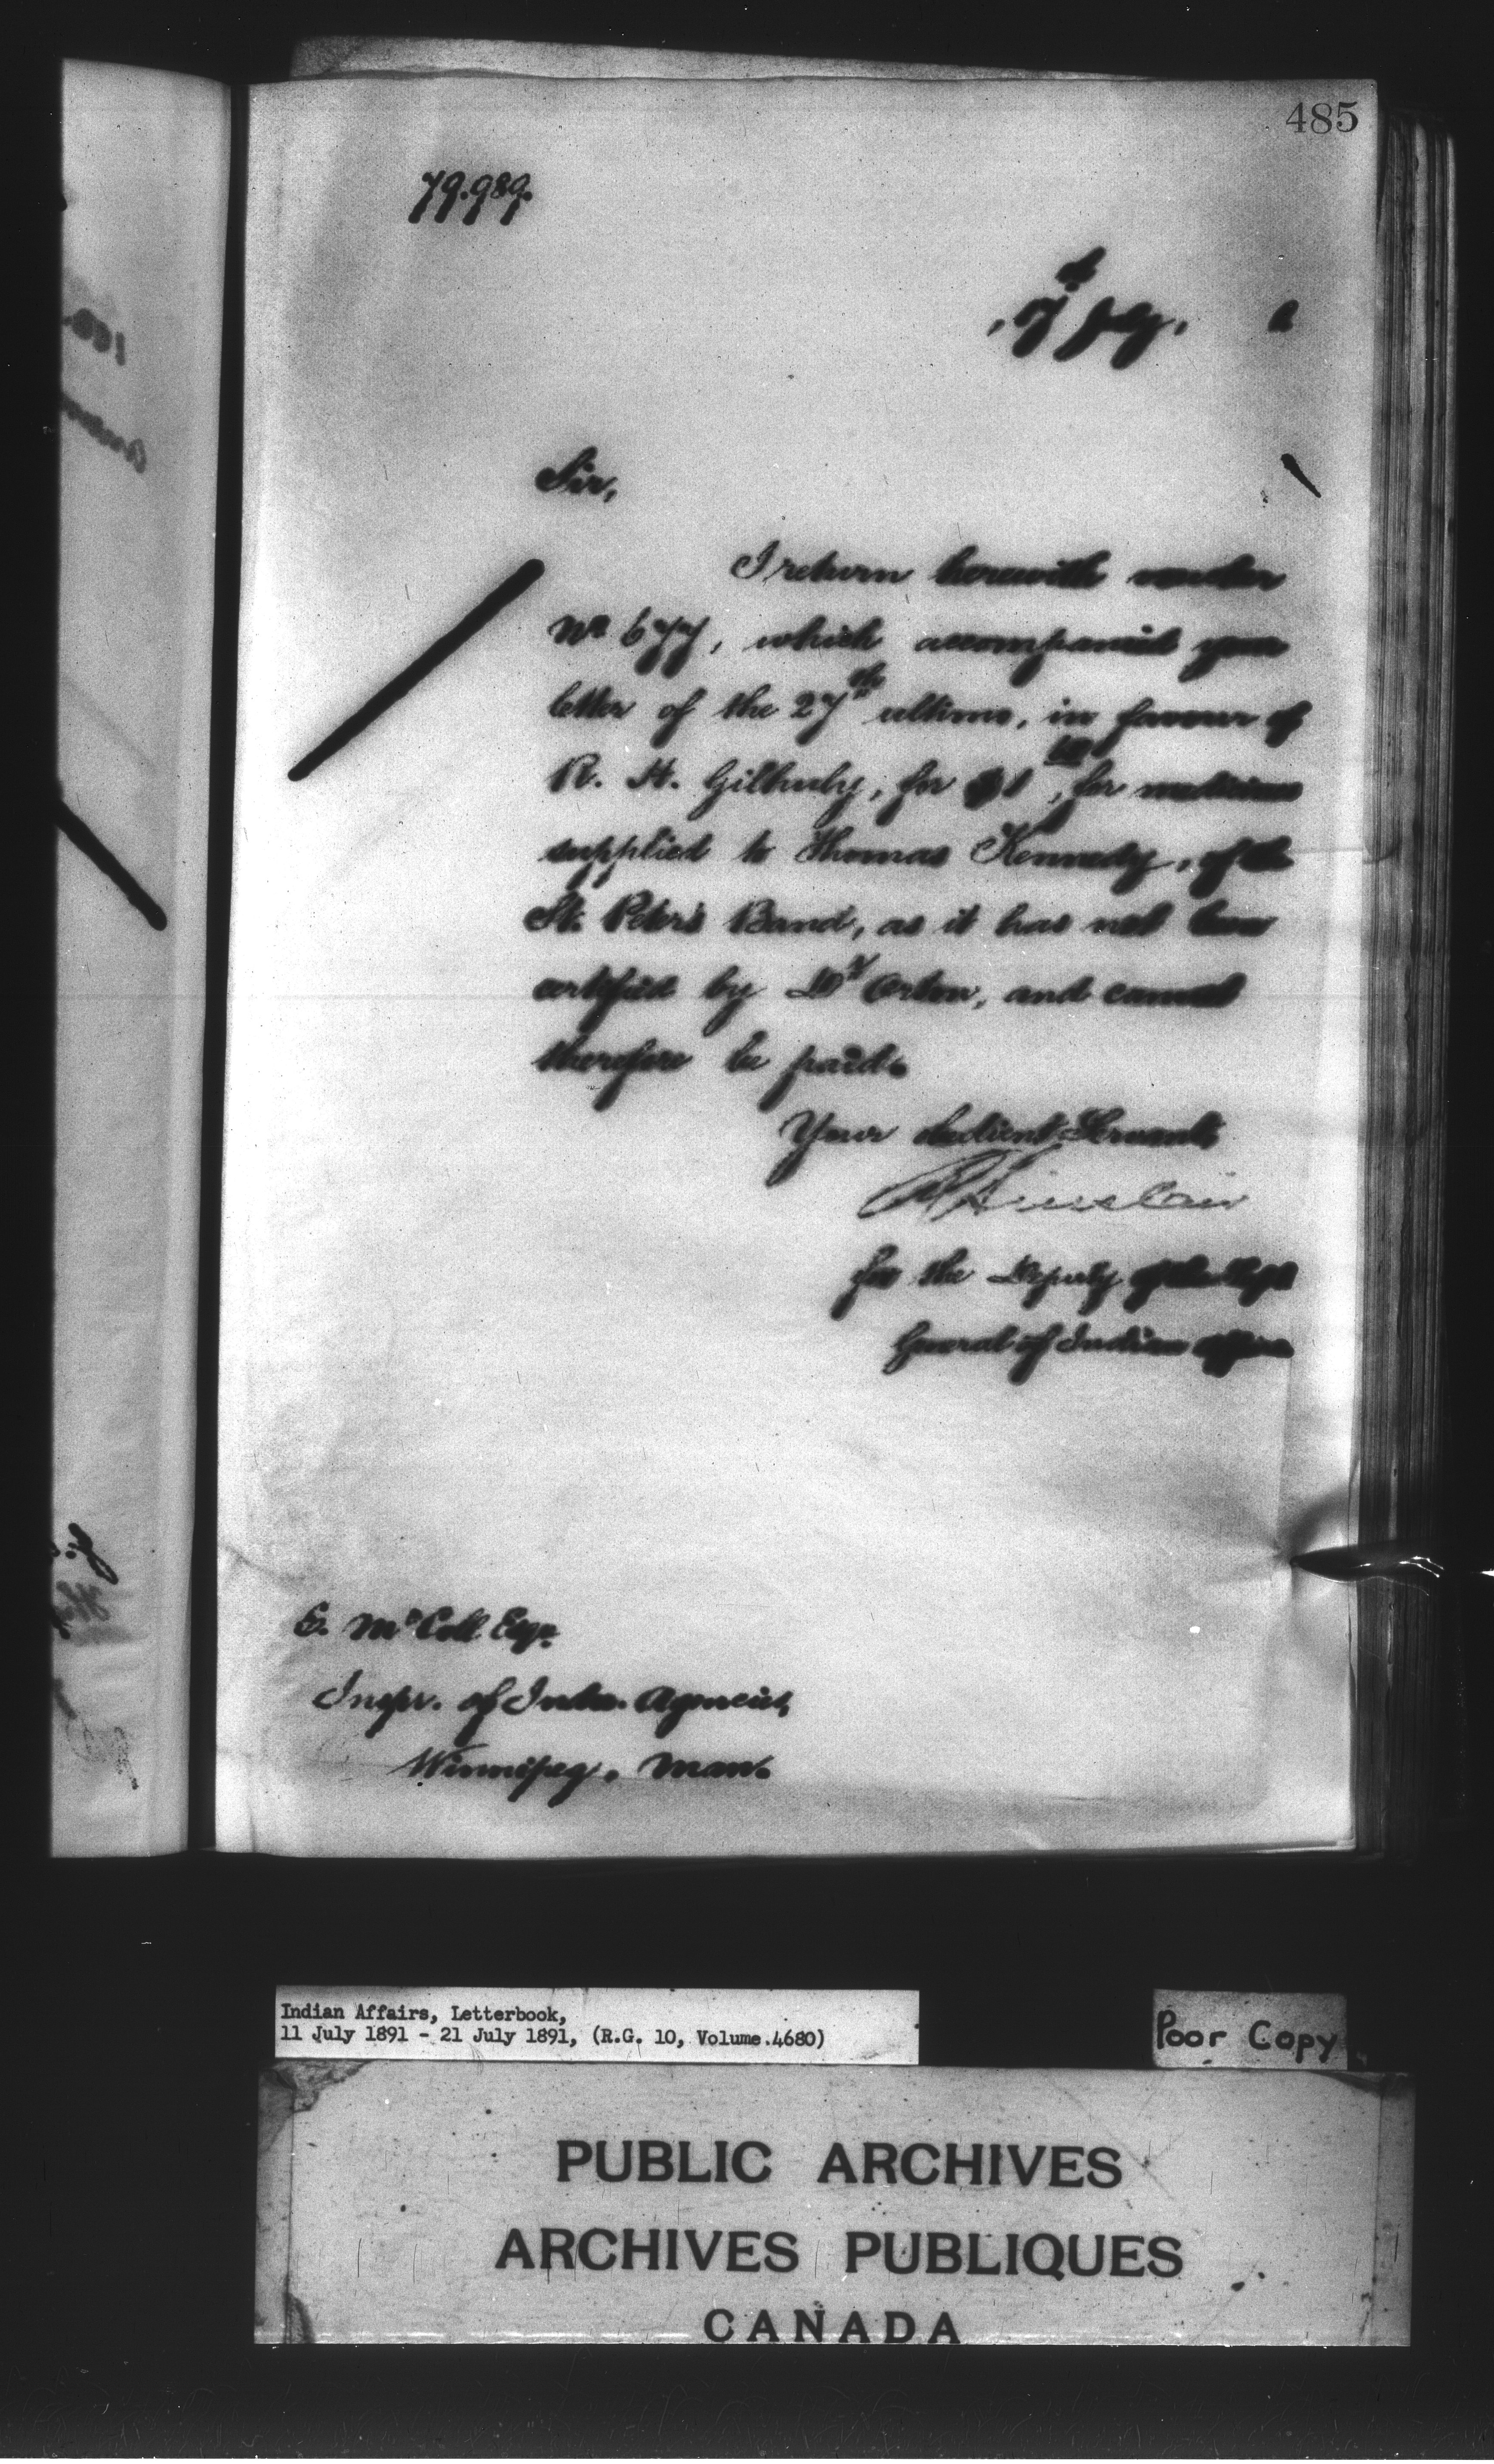 485
79.989.
17 July,
Sir,
I return herewith voucher
No 677, which accompanied your
letter of the 27th ultimo, in favour of
R. H. Gilhuly, for $1 , for medicines
supplied to Thomas Kennedy, of the
St. Peter's Band, as it has not been
certified by Dr Orton, and cannot
therefore be paid.
Your obedient Servant,
R Sinclair
for the Deputy of the Supt
General of Indian Affairs
E. McColl Esqr.
Inspr. of Indn. Agencies,
Winnipeg, Man.
Indian Affairs, Letterbook,
11 July 1891 - 21 July 1891, (R.G. 10, Volume.4680)
Poor Copy
PUBLIC ARCHIVES
ARCHIVES PUBLIQUES
CANADA